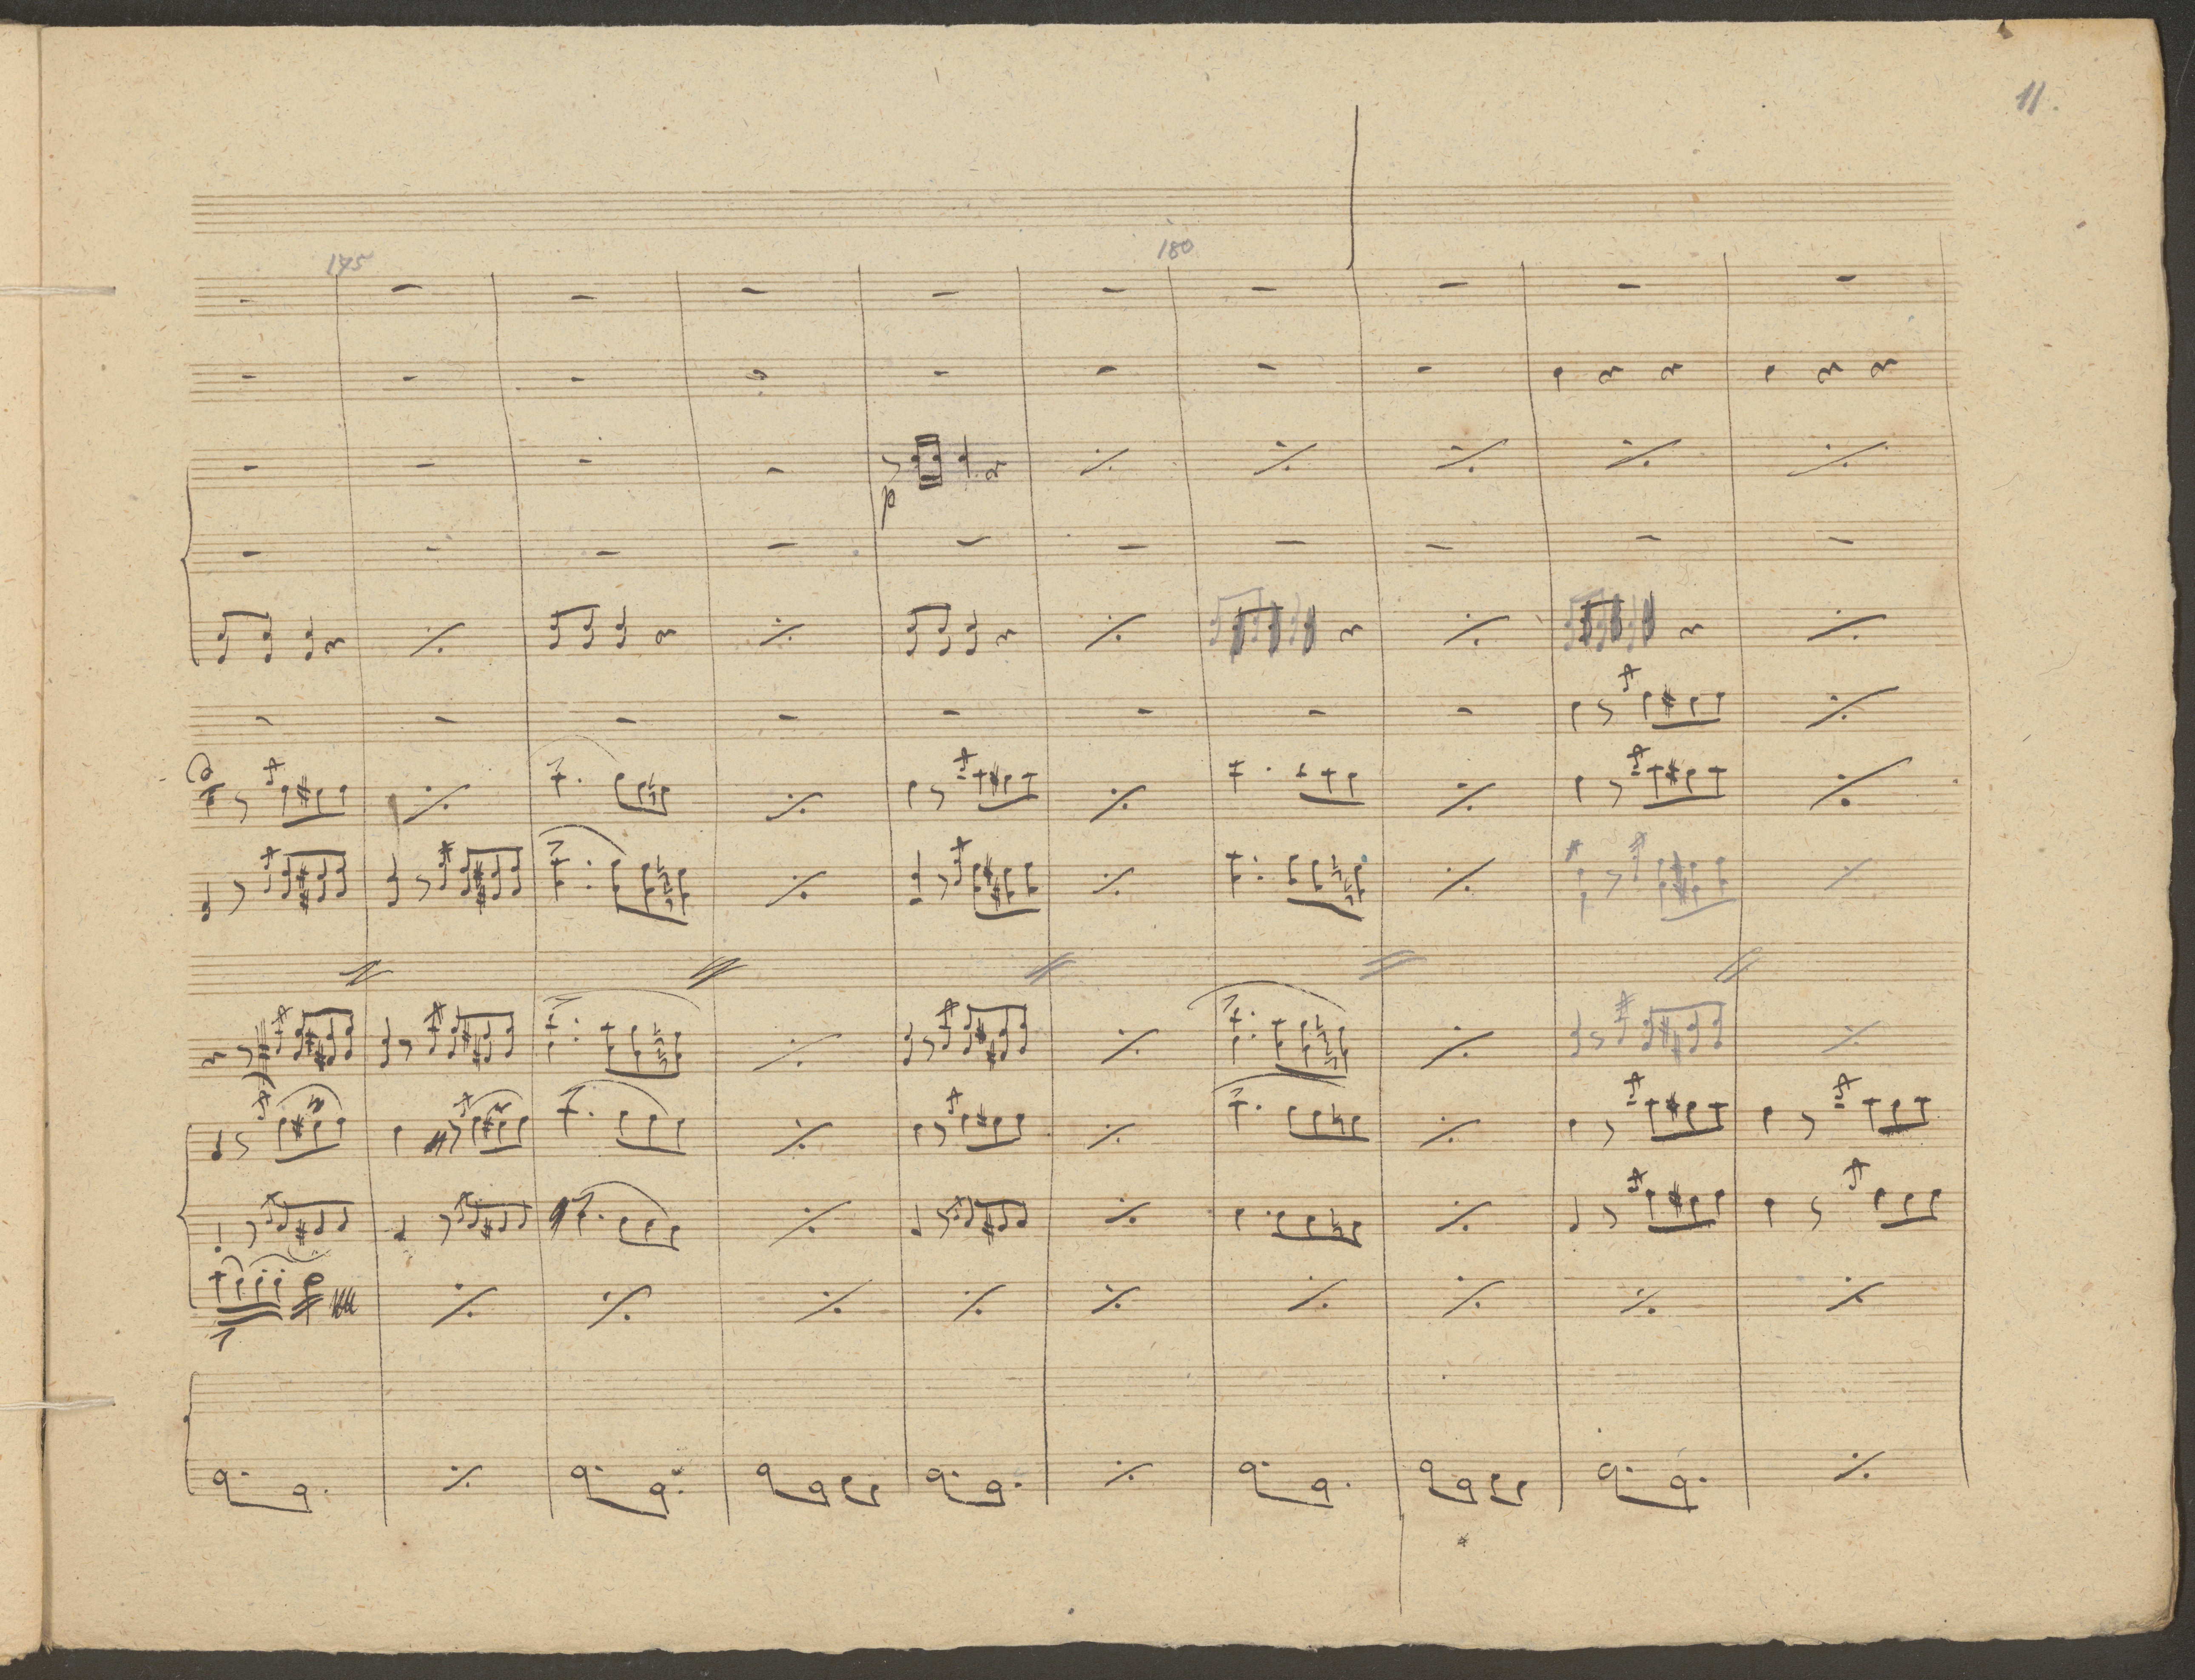 11.
175
180
p